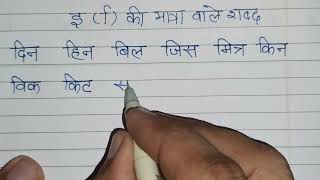 इ (ि) की मात्रा वाले शब्द
दिन हिन बिल जिस मित्र किन
विक किट स